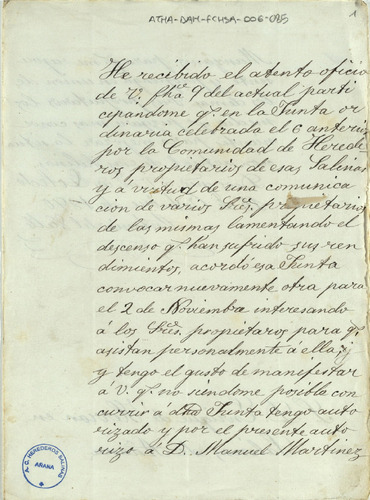 ATHA-DAH-FCHSA-006-085
1
He recibido el atento oficio
de V. fha 7 del actual parti
cipandome q.e en la Junta or
dinaria celebrada el 6 anterior
por la Comunidad de Herede
ros propietarios de esas Salinas
y a virtud de una comunica
cion de varios Sres. propietarios
de las mismas lamentando el
descenso q.e han sufrido sus ren
dimientos, acordó esa Junta
convocar nuevamente otra para
el 2 de Noviembre interesando
á los Sres. propietaros para q.e
asistan personalmente á ella; y
y tengo el gusto de manifestar
á V. q.e no siendome posible con
currir á dha Junta tengo auto
rizado y por el presente auto
rizo á D. Manuel Martinez
A. C. HEREDEROS SALINAS
ARANA